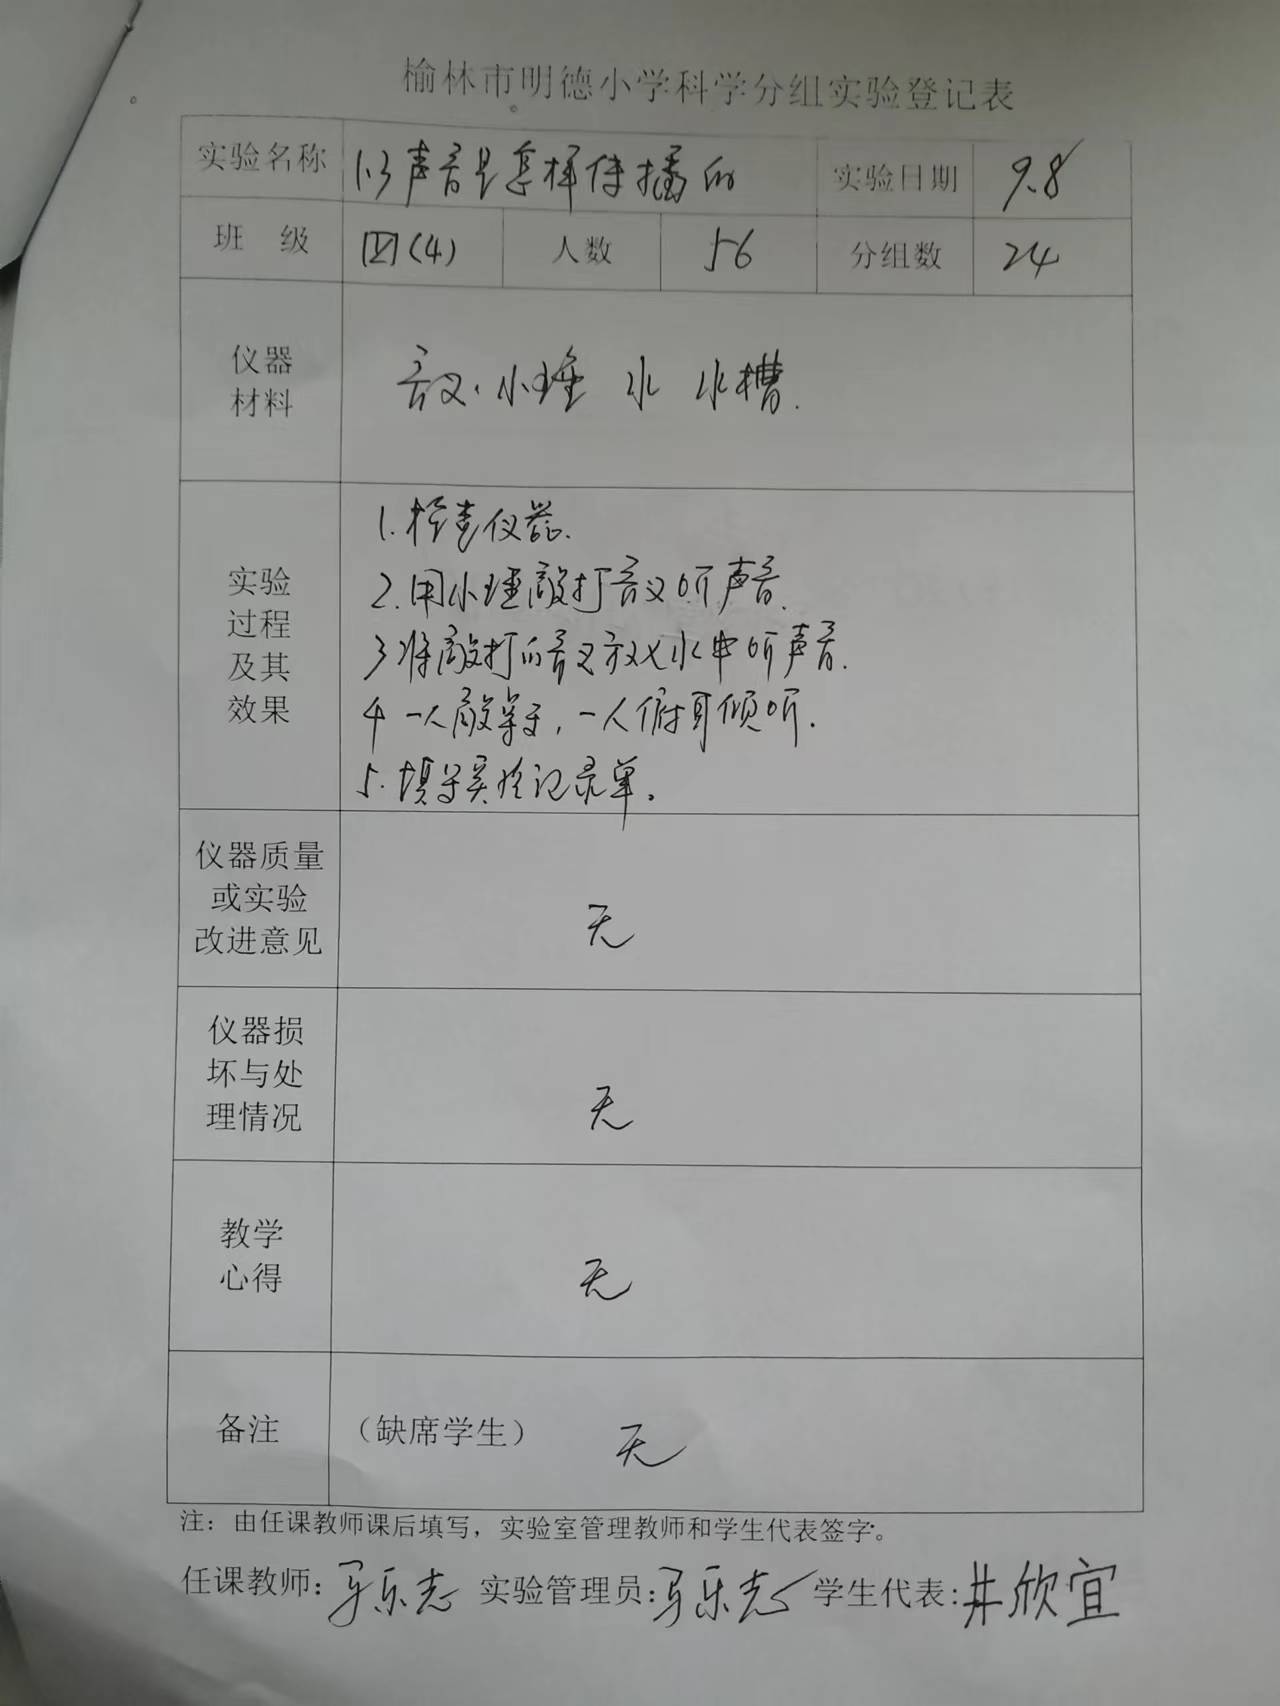 榆林市明德小学科学分组实验登记表
实验名称 1.3声音是怎样传播的 实验日期 9.8
班 级 四(4) 人数 56 分组数 24
仪器
材料
音叉.小锤 水 水槽.
实验
过程
及其
效果
1.检查仪器.
2.用小锤敲打音叉听声音.
3将敲打的音叉放入水中听声音.
4 一人敲桌子,一人俯耳倾听.
5.填写实验记录单。
仪器质量
或实验
改进意见
无
仪器损
坏与处
理情况
无
教学
心得
无
备注 (缺席学生) 无
注：由任课教师课后填写，实验室管理教师和学生代表签字。
任课教师:马乐志 实验管理员:马乐志 学生代表:井欣宜